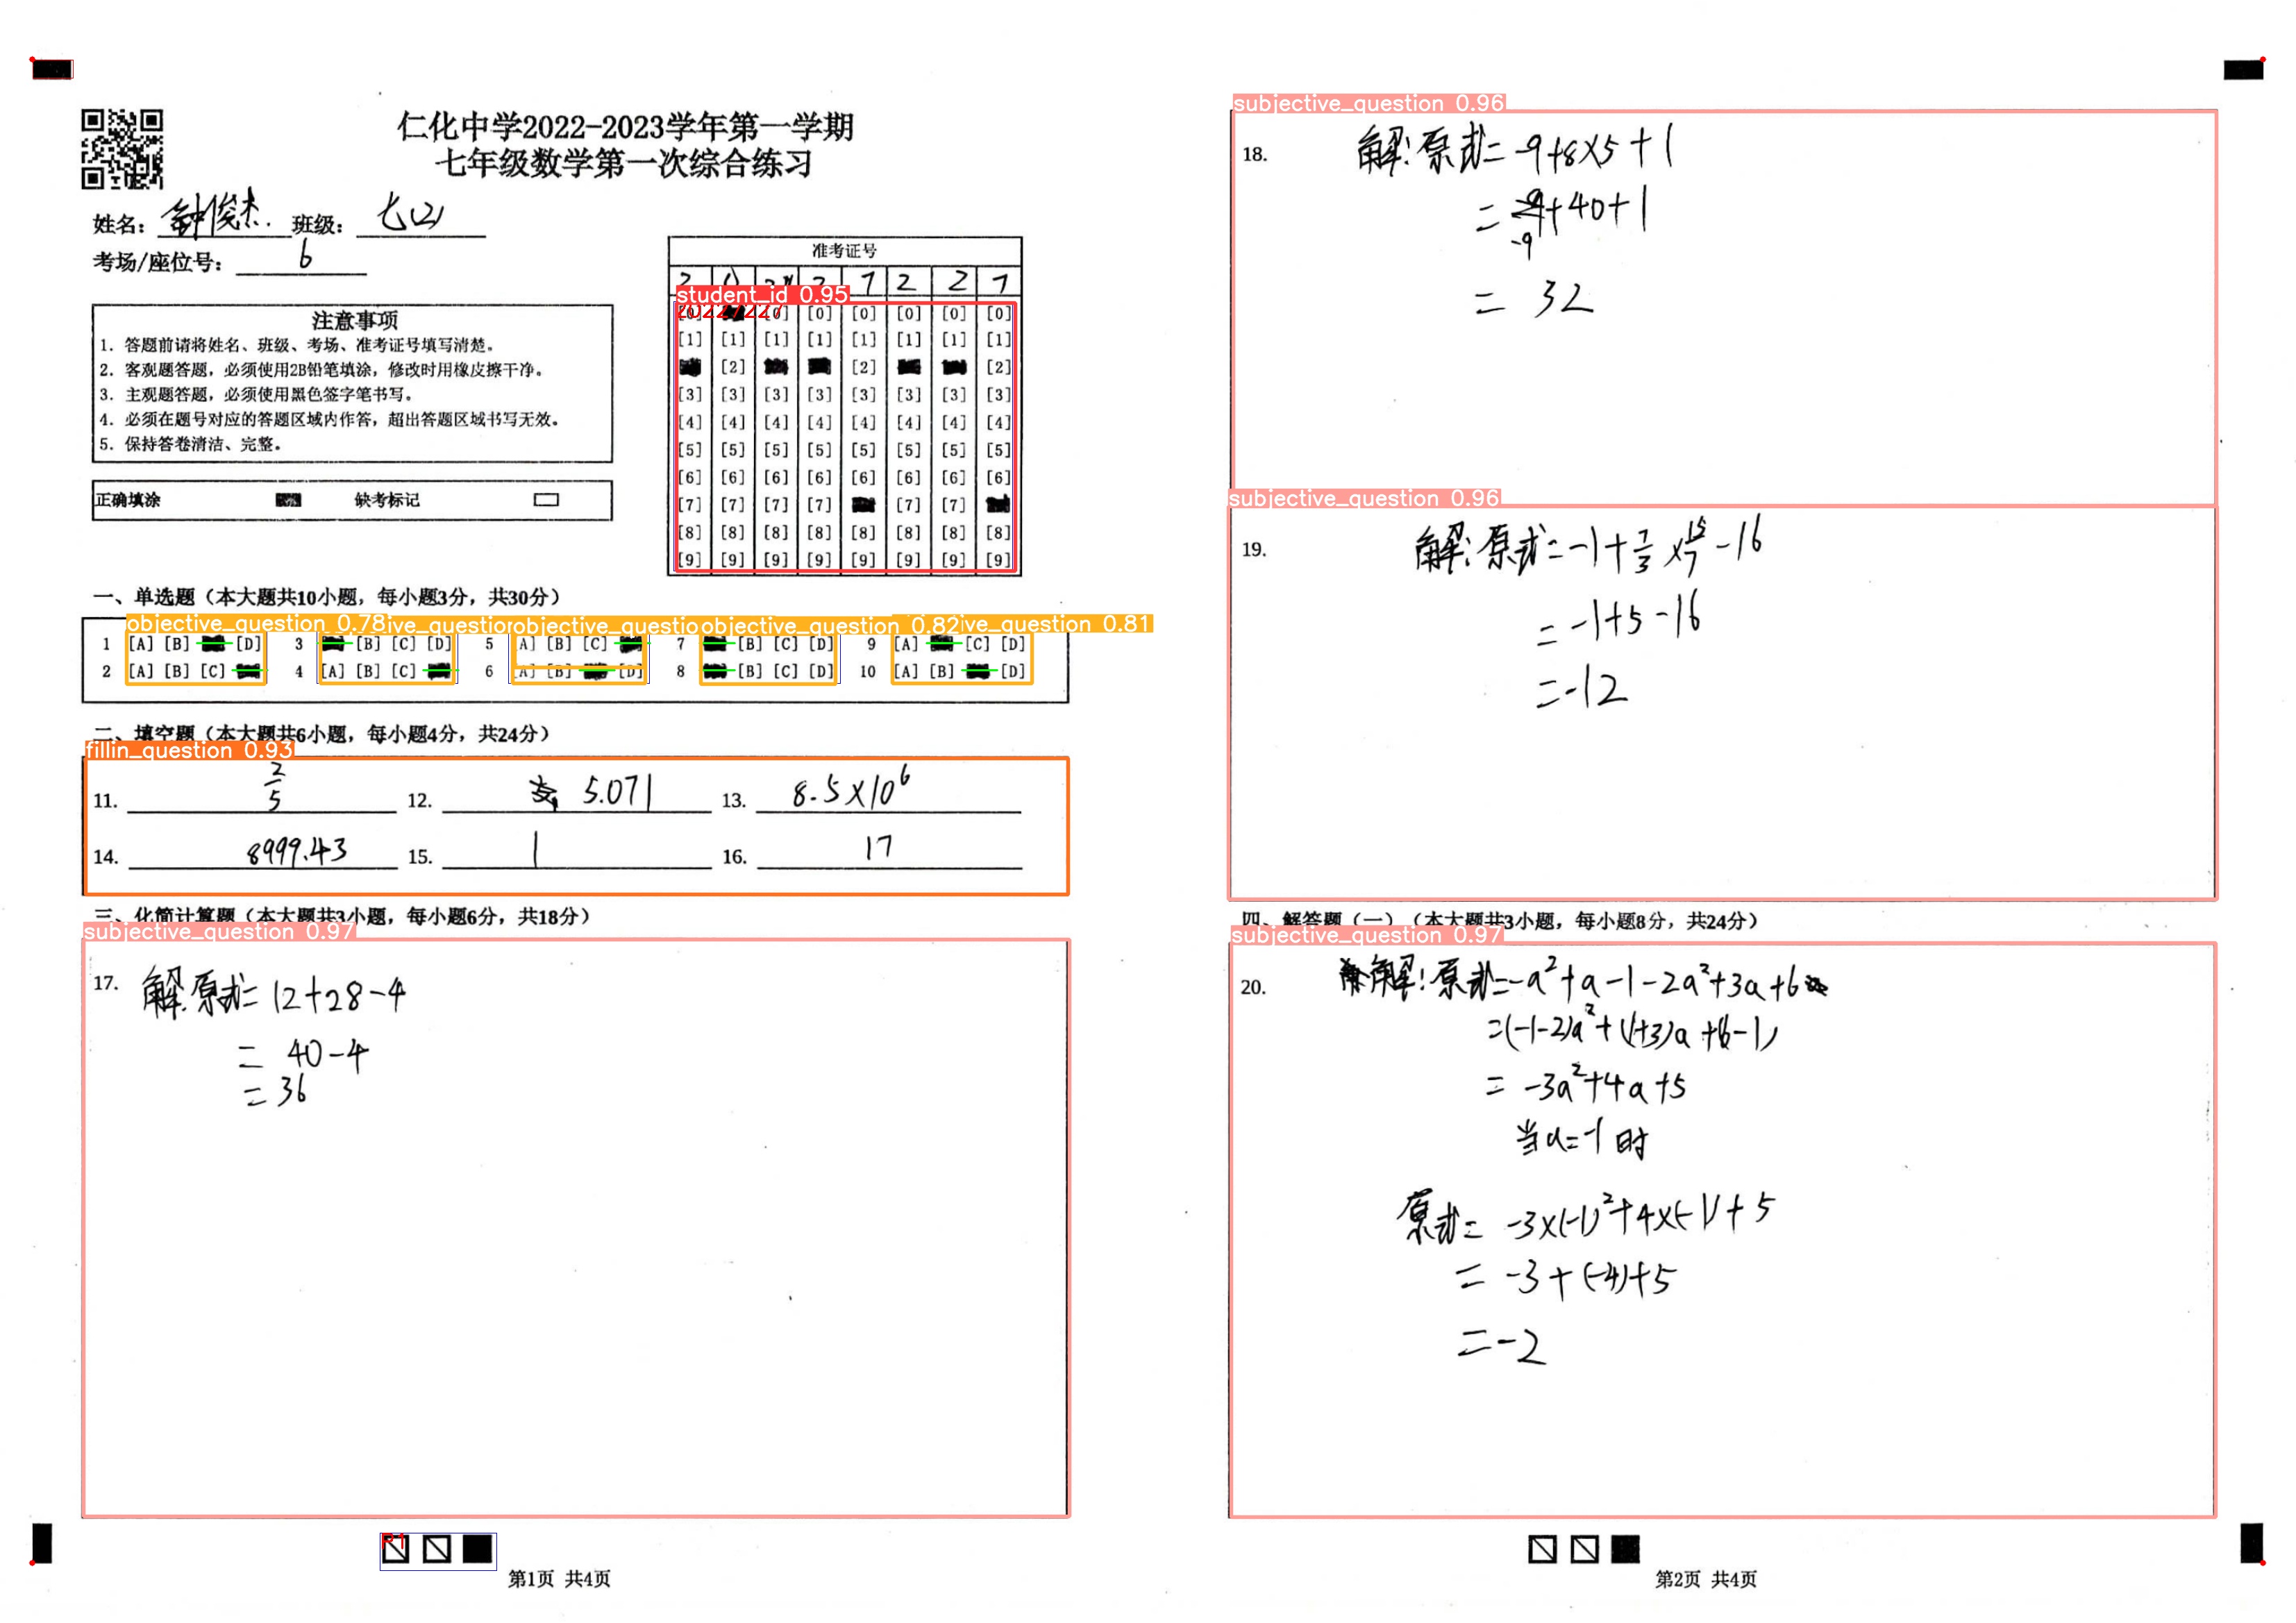 仁化中学2022-2023学年第一学期
七年级数学第一次综合练习
姓名: 钟俊杰. 班级: 七(2)
考场/座位号: 6
准考证号
2 0 2 2 7 2 2 7
student_id 0.95
20227227
注意事项
1. 答题前请将姓名、班级、考场、准考证号填写清楚。
2. 客观题答题, 必须使用2B铅笔填涂, 修改时用橡皮擦干净。
3. 主观题答题, 必须使用黑色签字笔书写。
4. 必须在题号对应的答题区域内作答, 超出答题区域书写无效。
5. 保持答卷清洁、完整。
正确填涂 缺考标记
[0] [0] [0] [0] [0] [0] [0]
[1] [1] [1] [1] [1] [1] [1] [1]
[2] [2] [2]
[3] [3] [3] [3] [3] [3] [3] [3]
[4] [4] [4] [4] [4] [4] [4] [4]
[5] [5] [5] [5] [5] [5] [5] [5]
[6] [6] [6] [6] [6] [6] [6] [6]
[7] [7] [7] [7] [7] [7]
[8] [8] [8] [8] [8] [8] [8] [8]
[9] [9] [9] [9] [9] [9] [9] [9]
一、单选题(本大题共10小题, 每小题3分, 共30分)
objective_question 0.78 ive_question objective_question objective_question 0.82 ive_question 0.81
1 [A] [B] [D] 3 [B] [C] [D] 5 [A] [B] [C] 7 [B] [C] [D] 9 [A] [C] [D]
2 [A] [B] [C] 4 [A] [B] [C] 6 [A] [B] [D] 8 [B] [C] [D] 10 [A] [B] [D]
二、填空题(本大题共6小题, 每小题4分, 共24分)
fillin_question 0.93
11. 2/5 12. 5.071 13. 8.5×10⁶
14. 8999.43 15. 1 16. 17
三、化简计算题(本大题共3小题, 每小题6分, 共18分)
subjective_question 0.97
17. 解:原式=12+28-4
= 40-4
=36
P1
第1页 共4页
subjective_question 0.96
18. 解:原式=-9+8×5+1
= -9+40+1
= 32
subjective_question 0.96
19. 解:原式=-1+7/3×15/7-16
=-1+5-16
=-12
四、解答题(一)(本大题共3小题, 每小题8分, 共24分)
subjective_question 0.97
20. 解:原式=-a²+a-1-2a²+3a+6
=(-1-2)a²+(1+3)a+(6-1)
= -3a²+4a+5
当a=-1时
原式= -3×(-1)²+4×(-1)+5
= -3+(-4)+5
=-2
第2页 共4页